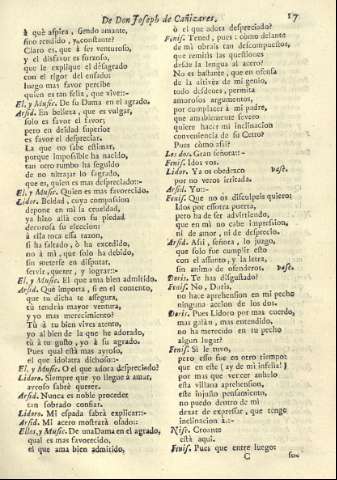 De Don Joseph de Cañizares.
17
à què aspira, siendo amante,
fino rendido, y constante?
Claro es, que à ser venturoso,
y el disfavor es forzoso,
que le explique el desagrado
con el rigor del enfado:
luego mas favor percibe
quien es tan feliz, que vive:-
El, y Music. De su Dama en el agrado.
Arsid. En belleza, que es vulgar,
solo es favor el favor;
pero en deidad superior
es favor el despreciar.
La que no sabe estimar,
porque impossible ha nacido,
tan otro rumbo ha seguido
de no ultrajar lo sagrado,
que es, quien es mas despreciado:-
El, y Music. Quien es mas favorecido.
Lidor. Beldad, cuya compassion
depone en mì su crueldad,
ya hizo allà con su piedad
decorosa su eleccion:
à ella toca essa razon,
si ha faltado, ò ha excedido,
no à mì, que solo ha debido,
sin meterse en disputar,
servir, querer, y lograr:-
El, y Music. El que ama bien admitido.
Arsid. Què importa, si en el contento,
que tu dicha te assegura,
tù tendràs mayor ventura,
y yo mas merecimiento?
Tù à tu bien vives atento,
yo al bien de la que he adorado,
tù à tu gusto, yo à su agrado.
Pues qual està mas ayroso,
el que idolatra dichoso:-
El, y Music. O el que adora despreciado?
Lidoro. Siempre que yo llegue à amar,
airoso sabrè querer.
Arsid. Nunca es noble proceder
tan sobrado confiar.
Lidoro. Mi espada sabrà explicar:-
Arsid. Mi acero mostrarà osado:-
Ellos, y Music. De una Dama en el agrado,
qual es mas favorecido,
el que ama bien admitido,
ò el que adora despreciado?
Fenis. Tened, pues: còmo delante
de mì obrais tan descompuestos,
que remitis las questiones
desde la lengua al acero?
No es bastante, que en ofensa
de la altivèz de mi genio,
todo desdenes, permita
amorosos argumentos,
por complacer à mi padre,
que amablemente severo
quiere hacer mi inclinacion
conveniencia de su Cetro?
Pues còmo assi?
Los dos. Gran señora:-
Fenis. Idos vos.
Lidor. Ya os obedezco Vase.
por no veros irritada.
Arsid. Yo:-
Fenis. Que no os disculpeis quiero:
Idos por essotra puerta,
pero ha de ser advirtiendo,
que en mì no cabe impression,
ni de amor, ni de desprecio.
Arsid. Assi, señora, lo juzgo,
que solo fue cumplir esto
con el assunto, y la letra,
sin animo de ofenderos. Vase.
Doris. Te has disgustado?
Fenis. No, Doris,
no hace aprehension en mi pecho
ninguna accion de los dos.
Doris. Pues Lidoro por mas cuerdo,
mas galàn, mas entendido,
no ha merecido en tu pecho
algun lugar?
Fenis. Si le tuvo,
pero esso fue en otro tiempo:
que en este (ay de mì infeliz!)
por mas que vencer anhelo
esta villana aprehension,
este injusto pensamiento,
no puedo dentro de mì
dexar de expressar, que tengo
inclinacion à:-
Nise. Creonte
està aqui.
Fenis. Pues que entre luego:
C